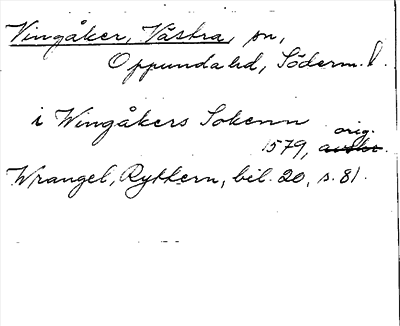 Vingåker, Västra, sn,
Oppunda hd, Söderm. l.
i Wingåkers Sokenn
orig.
1579, avskr.
Wrangel, Rytkern, bil. 20, s. 81.